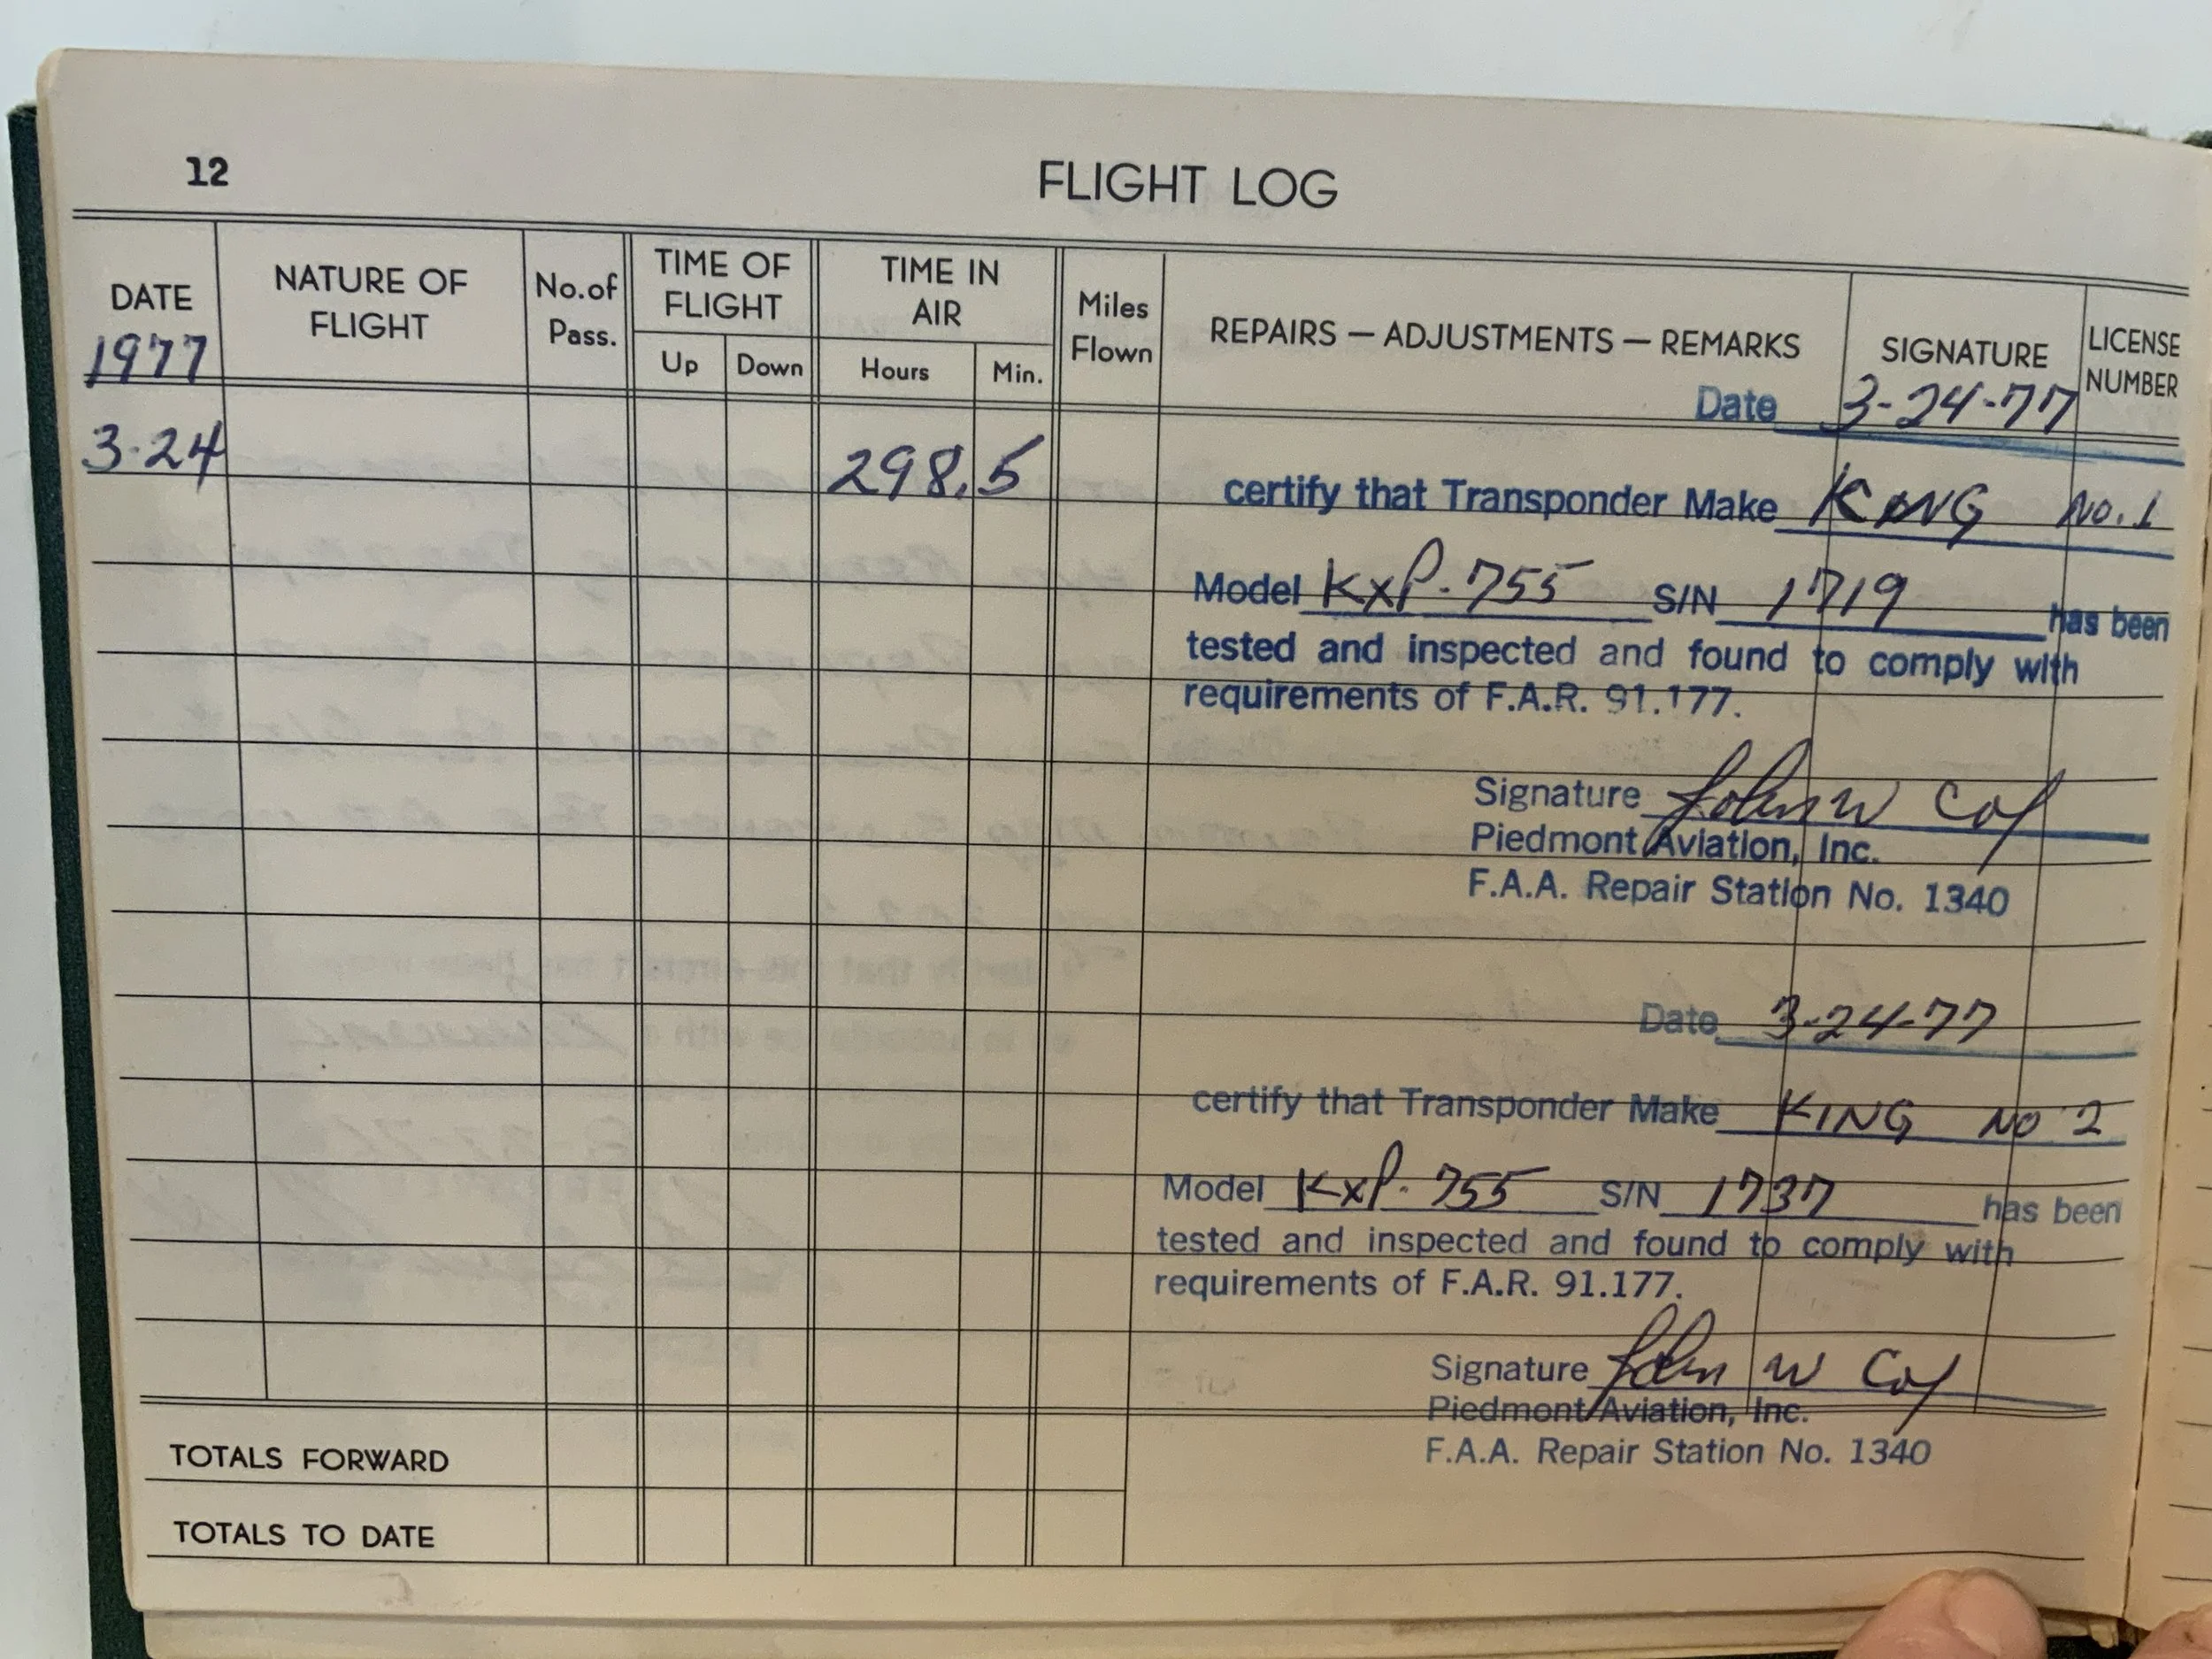 12
FLIGHT LOG
DATE
1977
NATURE OF
FLIGHT
No.of
Pass.
TIME OF
FLIGHT
Up
Down
TIME IN
AIR
Hours
Min.
Miles
Flown
REPAIRS — ADJUSTMENTS — REMARKS
SIGNATURE
LICENSE
NUMBER
3-24
298.5
Date 3-24-77
certify that Transponder Make KING No. 1
Model KXP-755 S/N 1719 has been
tested and inspected and found to comply with
requirements of F.A.R. 91.177.
Signature John W Coy
Piedmont Aviation, Inc.
F.A.A. Repair Station No. 1340
Date 3-24-77
certify that Transponder Make KING NO 2
Model KXP-755 S/N 1737 has been
tested and inspected and found to comply with
requirements of F.A.R. 91.177.
Signature John W Coy
Piedmont Aviation, Inc.
F.A.A. Repair Station No. 1340
TOTALS FORWARD
TOTALS TO DATE